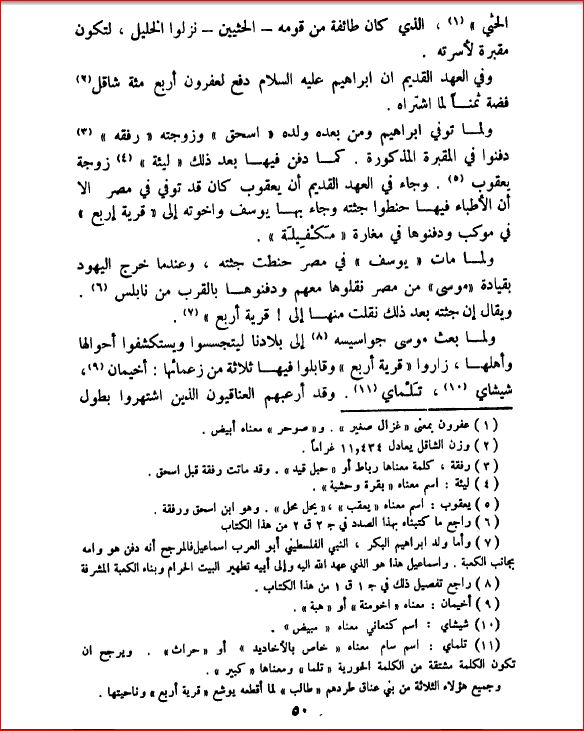 الحثي » (١) ، الذي كان طائفة من قومه – الحثيين – نزلوا الخليل ، لتكون
مقبرة لأسرته .
وفي العهد القديم ان ابراهيم عليه السلام دفع لعفرون أربع مئة شاقل(٢)
فضة ثمناً لما اشتراه .
ولما توفي ابراهيم ومن بعده ولده « اسحق » وزوجته « رفقه » (٣)
دفنوا في المقبرة المذكورة . كما دفن فيها بعد ذلك « ليئة » (٤) زوجة
يعقوب (٥) . وجاء في العهد القديم أن يعقوب كان قد توفي في مصر الا
أن الأطباء فيها حنطوا جثته وجاء بها يوسف واخوته إلى « قرية إربع »
في موكب ودفنوها في مغارة « مكنفيلة » .
ولما مات « يوسف » في مصر حنطت جثته ، وعندما خرج اليهود
بقيادة «موسى» من مصر نقلوها معهم ودفنوها بالقرب من نابلس (٦) .
ويقال إن جثته بعد ذلك نقلت منها إلى ! قرية أربع » (٧) .
ولما بعث موسى جواسيسه (٨) إلى بلادنا ليتجسسوا ويستكشفوا أحوالها
وأهلها ، زاروا « قرية أربع » وقابلوا فيها ثلاثة من زعمائها : أخيمان (٩)،
شيشاي (١٠) ، تلماي (١١) . وقد أرعبهم العناقيون الذين اشتهروا بطول
(١) عفرون بمعنى « غزال صغير » . و« صوحر » معناه أبيض .
(٢) وزن الشاقل يعادل ١١,٤٣٤ غراماً .
(٣) رفقة ، كلمة معناها رباط أو « حبل قيد » . وقد ماتت رفقة قبل اسحق .
(٤) ليئة : اسم معناه « بقرة وحشية » .
(٥) يعقوب : اسم معناه « يعقب » ،« يحل محل » . وهو ابن اسحق ورفقة .
(٦) راجع ما كتبناه بهذا الصدد في ج ٢ ق ٢ من هذا الكتاب
(٧) وأما ولد ابراهيم البكر ، النبي الفلسطيني أبو العرب اسماعيل فالمرجح أنه دفن هو وامه
بجانب الكعبة . واسماعيل هذا هو الذي عهد الله اليه وإلى أبيه تطهير البيت الحرام وبناء الكعبة المشرفة
(٨) راجع تفصيل ذلك في ج ١ ق ١ من هذا الكتاب .
(٩) أخيمان : معناه « اخومنة » أو « هبة » .
(١٠) شيشاي : اسم كنعاني معناه « مبيض » .
(١١) تلماي : اسم سام معناه « خاص بالأخاديد » أو « حراث » . ويرجح ان
تكون الكلمة مشتقة من الكلمة الحورية « تلما » ومعناها « كبير » .
وجميع هؤلاء الثلاثة من بني عناق طردهم « طالب » لما أقطعه يوشع « قرية أربع » وناحيتها .
٥٠